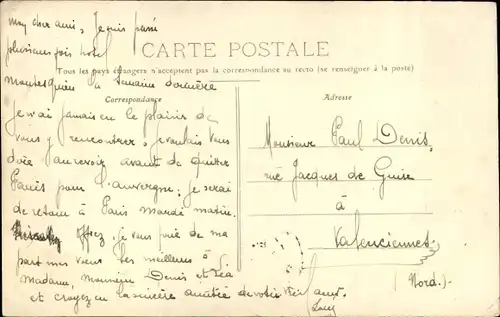 mon cher ami, Je suis passé
plusieurs fois hotel
CARTE POSTALE
Tous les pays étrangers n'acceptent pas la correspondance au recto (se renseigner à la poste)
Montesquieu la semaine dernière
Correspondance
Adresse
je n'ai jamais eu le plaisir de
vous y rencontrer, je voulais vous
dire au revoir avant de quitter
Paris pour l'auvergne; je serai
de retour à Paris mardi matin.
offrez, je vous prie de ma
part mes vœux les meilleurs à
Madame, monsieur Denis et Léa
et croyez en la sincère amitié de votre
Monsieur Paul Denis,
rue Jacques de Guise
à
Valenciennes
(Nord.)-